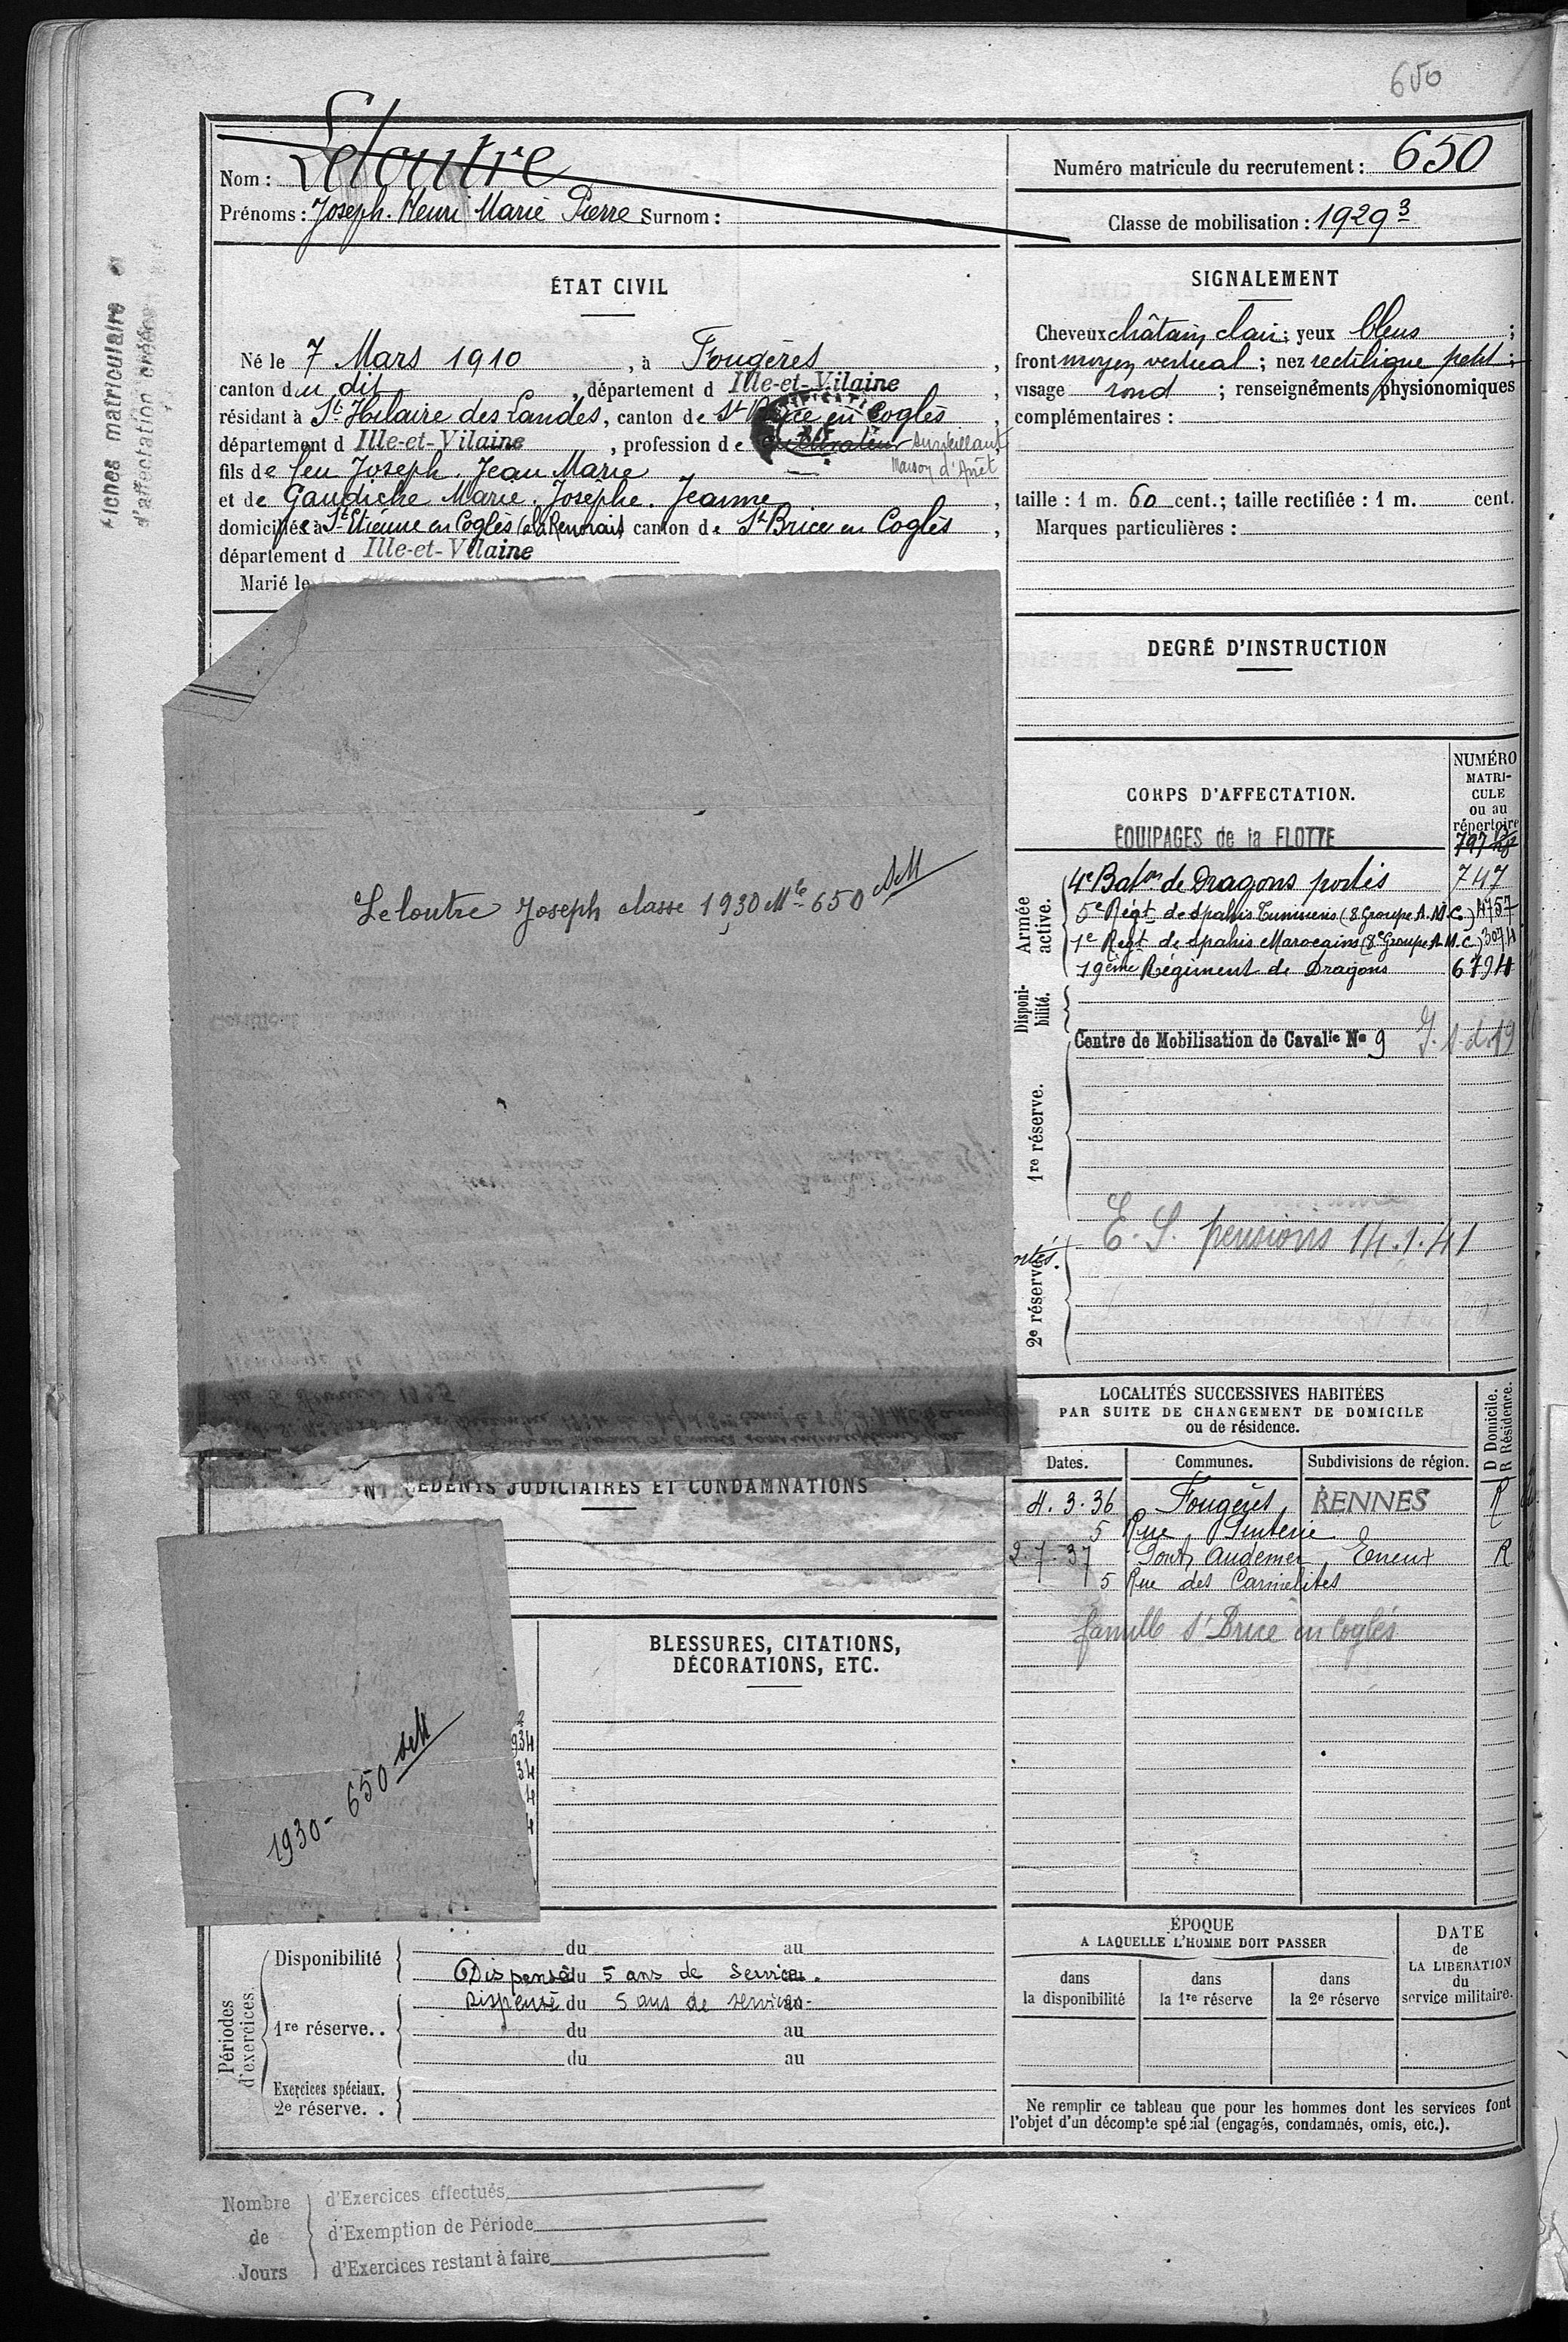 650
Nom : Leloutre
Prénoms : Joseph. Henri Marie Pierre Surnom :
Numéro matricule du recrutement : 650
Classe de mobilisation : 1929 3
Fiches matriculaire et
d'affectation créées
ÉTAT CIVIL
Né le 7 Mars 1910, à Fougères,
canton du dit, département d Ille-et-Vilaine,
résidant à St Hilaire des Landes, canton de St Brice en Coglès,
département d Ille-et-Vilaine, profession de cultivateur surveillant
Maison d'Arrêt
fils de feu Joseph. Jean Marie
et de Gaudiche Marie. Josèphe. Jeanne,
domiciliée à St Etienne en Coglès canton de St Brice en Coglès,
département d Ille-et-Vilaine
Marié le
Leloutre Joseph classe 1930 Mle 650
SIGNALEMENT
Cheveux châtain clair ; yeux bleus ;
front moyen vertical ; nez rectiligne petit ;
visage rond ; renseignements physionomiques
complémentaires :
taille : 1 m. 60 cent. ; taille rectifiée : 1 m. cent.
Marques particulières :
DEGRÉ D'INSTRUCTION
CORPS D'AFFECTATION.
NUMÉRO
MATRI-
CULE
ou au
répertoire
ÉQUIPAGES de la FLOTTE 797
Armée active.
4e Baton de Dragons portés 747
5e Régt de spahis Tunisiens (8 Groupe A.M.C.) 4757
1e Régt de spahis Marocains (8e Groupe A.M.C.) 3074
19ème Régiment de Dragons 6794
Disponi-
bilité.
Centre de Mobilisation de Cavalie No 9
1re réserve.
E. S. pensions 14.1.41
ortés.
2e réserve.
LOCALITÉS SUCCESSIVES HABITÉES
PAR SUITE DE CHANGEMENT DE DOMICILE
ou de résidence.
D Domicile.
R Résidence.
Dates. Communes. Subdivisions de région.
4.3.36 Fougères RENNES R
5 Rue Pinterie
2.7.37 Pont Audemer Evreux R
5 Rue des Carmélites
famille St Brice en Coglès
ÉDENTS JUDICIAIRES ET CONDAMNATIONS
BLESSURES, CITATIONS,
DÉCORATIONS, ETC.
934
34
4
4
1930 - 650
Périodes
d'exercices.
Disponibilité du au
Dispensé du 5 ans de service. au
1re réserve. . Dispensé du 5 ans de service - au
du au
du au
Exercices spéciaux.
2e réserve. .
ÉPOQUE
A LAQUELLE L'HOMME DOIT PASSER
dans
la disponibilité
dans
la 1re réserve
dans
la 2e réserve
DATE
de
LA LIBÉRATION
du
service militaire.
Ne remplir ce tableau que pour les hommes dont les services font
l'objet d'un décompte spécial (engagés, condamnés, omis, etc.).
Nombre
de
Jours
d'Exercices effectués
d'Exemption de Période
d'Exercices restant à faire